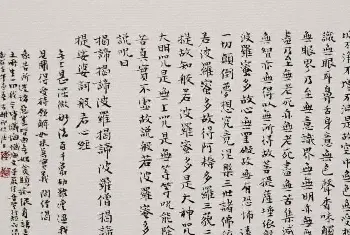 不淨不增不減是故空中無色無受
識無眼耳鼻舌身意無色聲香味觸
無眼界乃至無意識界無無明亦無
盡乃至無老死亦無老死盡無苦集滅
無智亦無得以無所得故菩提薩埵依般
波羅蜜多故心無罣礙故無有恐怖遠
一切顛倒夢想究竟涅槃三世諸佛依
若波羅蜜多故得阿耨多羅三藐三
提故知般若波羅蜜多是大神咒
大明咒是無上咒是無等等咒能除
苦真實不虛故說般若波羅蜜多
說咒曰
揭諦揭諦波羅揭諦波羅僧揭諦
提娑婆訶般若心經
無上甚深微妙法百千萬劫難遭遇我
見聞得受持願解如來真實義 開經偈